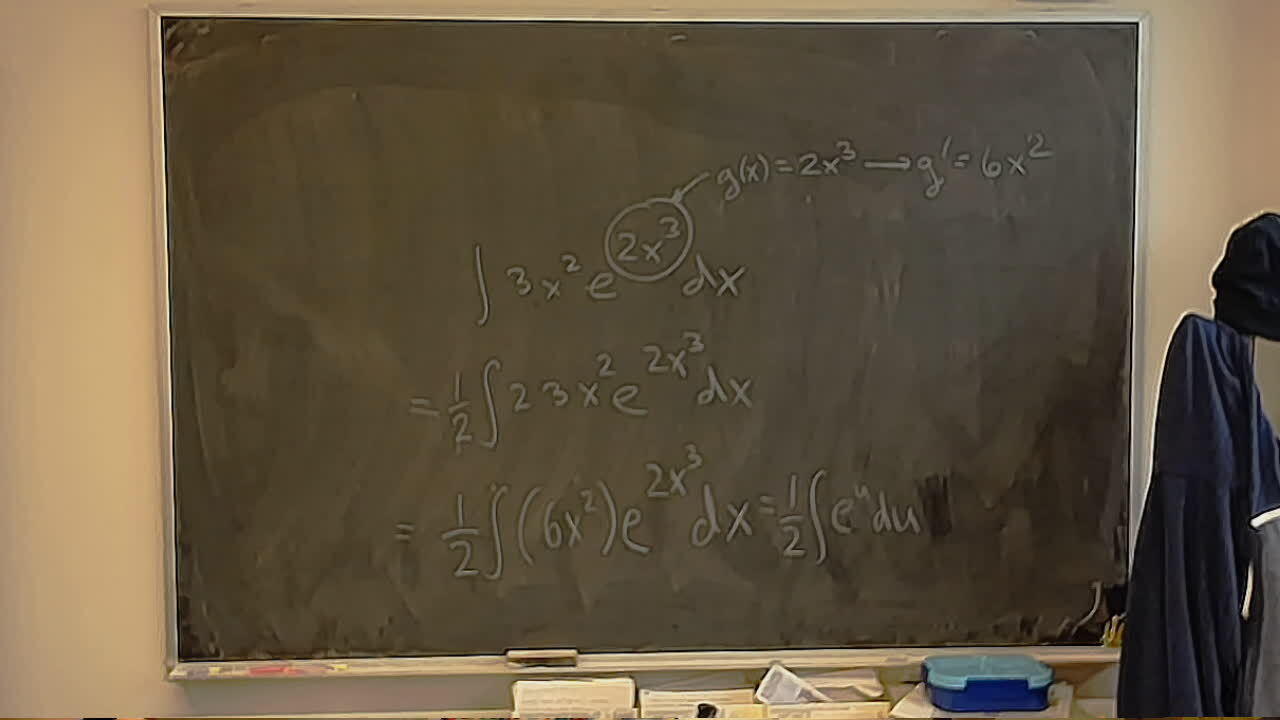 g(x) = 2x³ → g' = 6x²
∫ 3x² e^{2x³} dx
= 1/2 ∫ 2 3x² e^{2x³} dx
= 1/2 ∫ (6x²) e^{2x³} dx = 1/2 ∫ e^u du